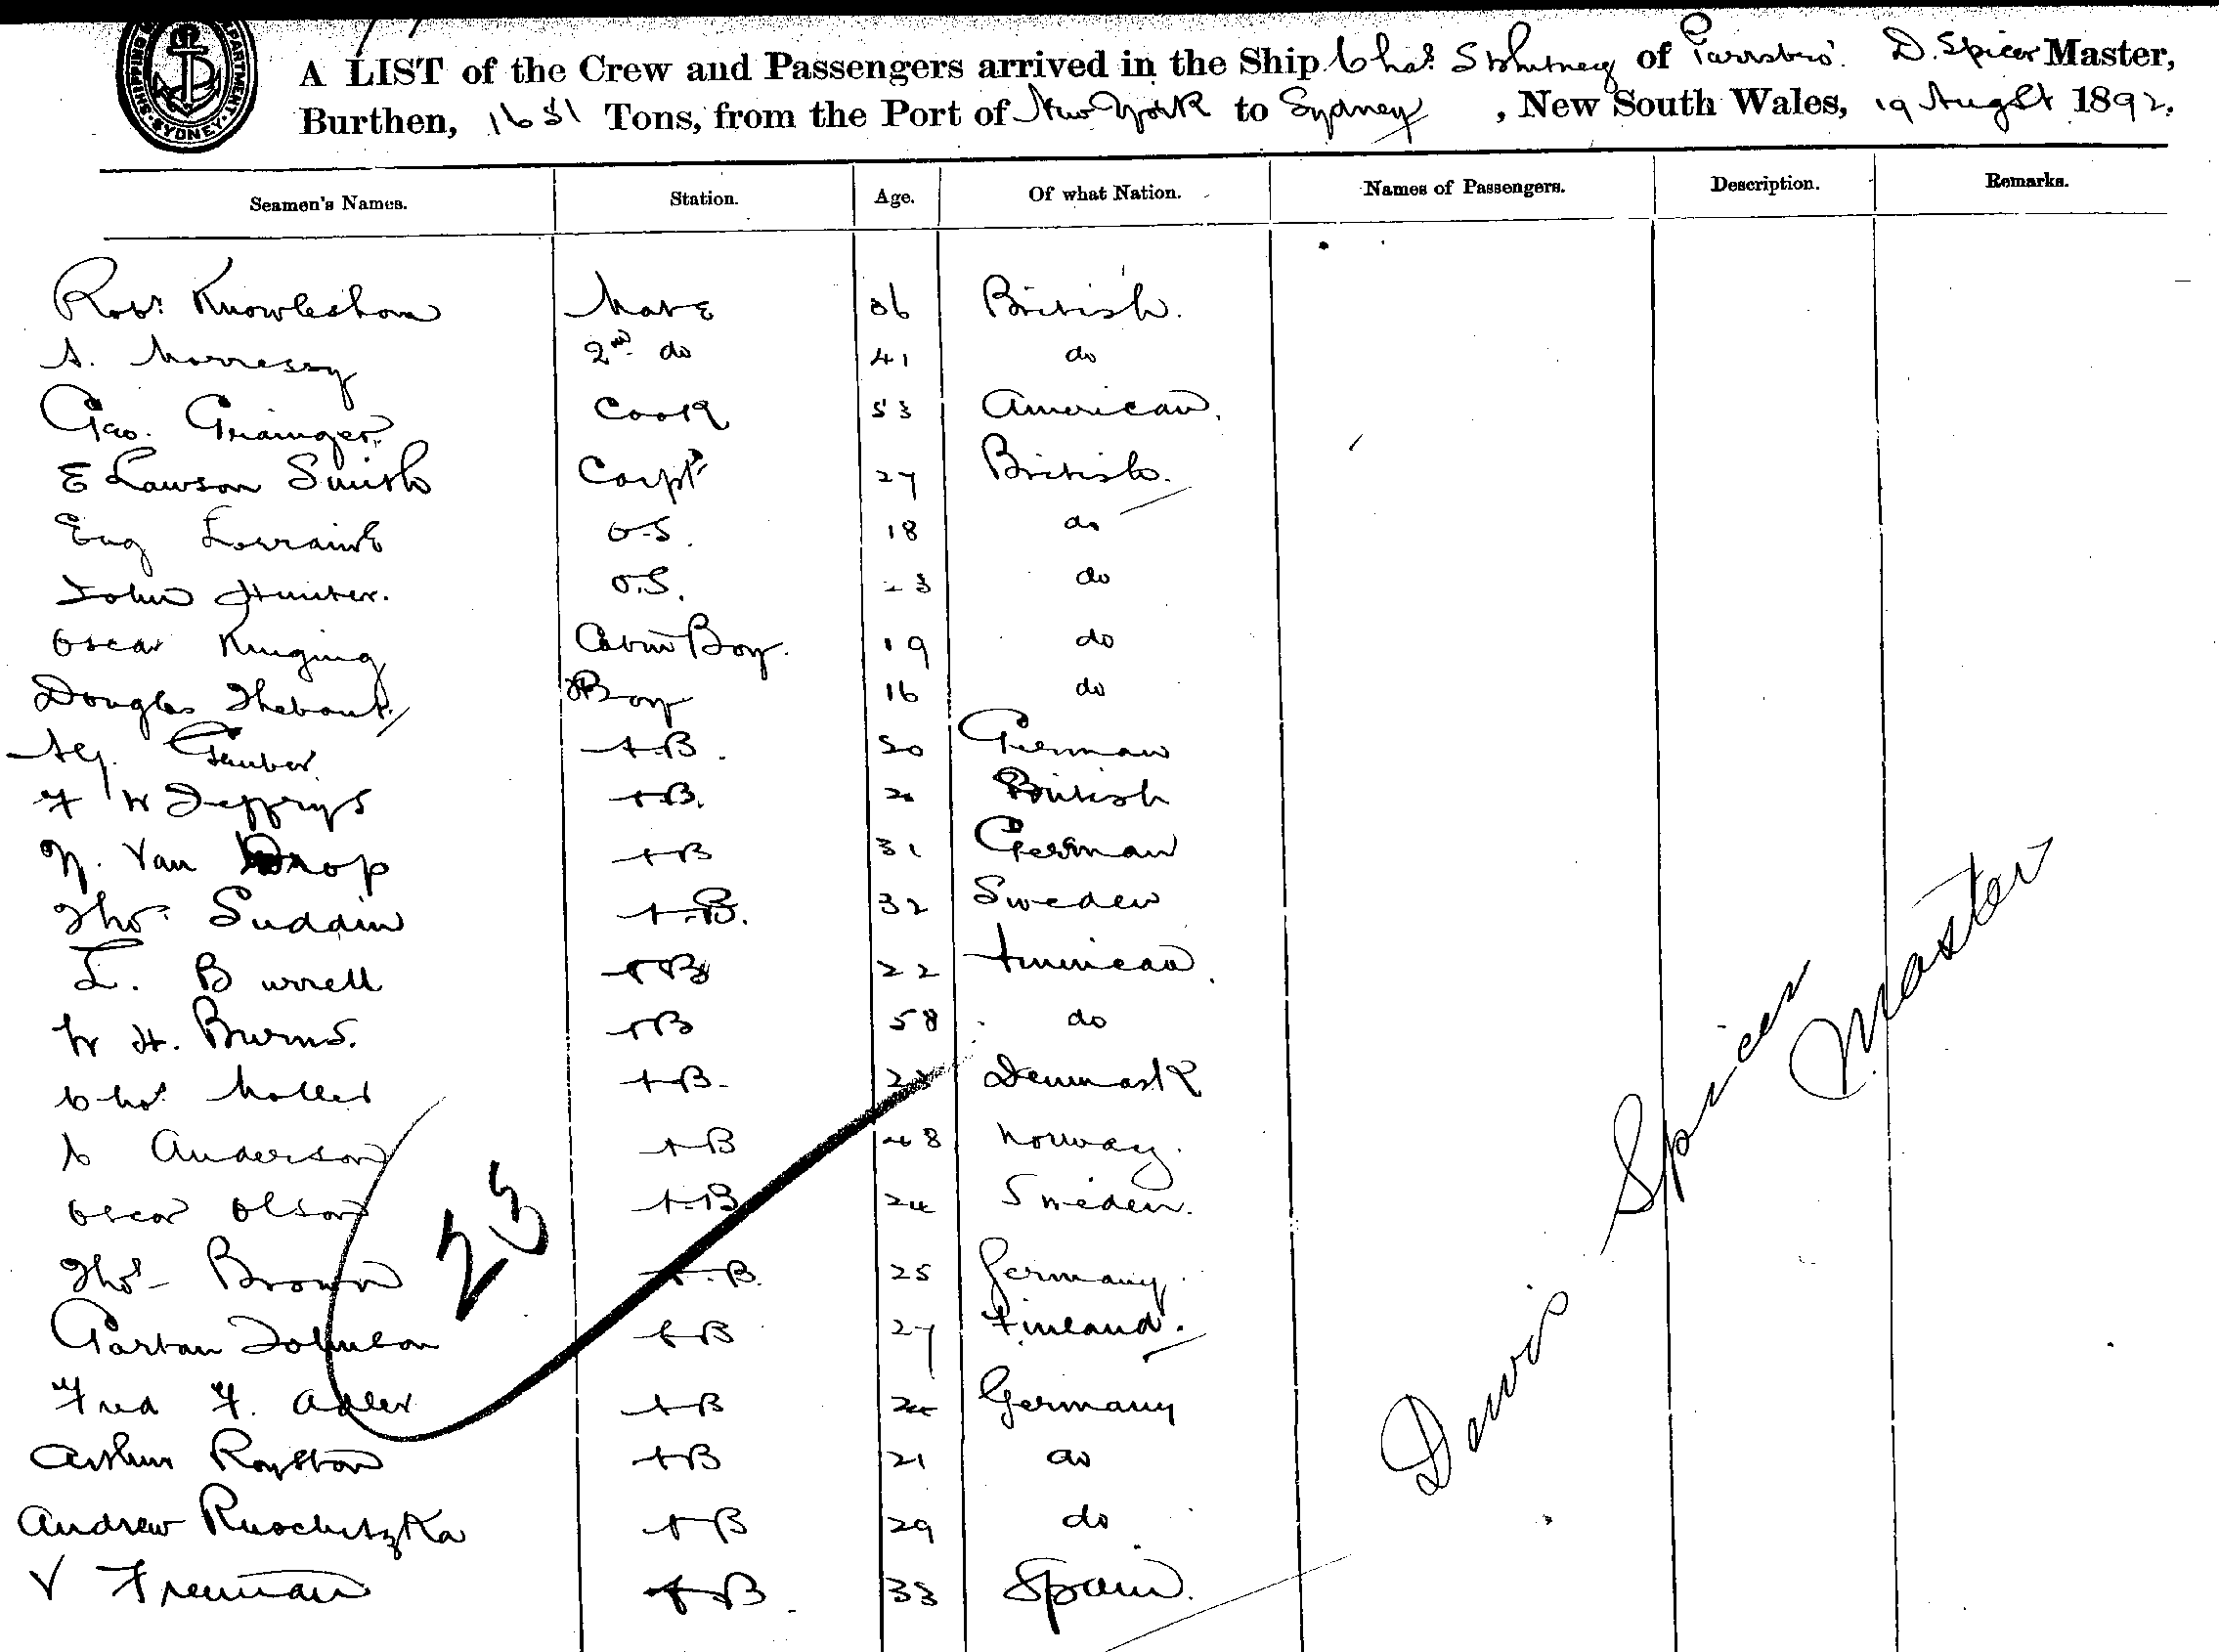 SHIPPING DEPARTMENT SYDNEY
A LIST of the Crew and Passengers arrived in the Ship Chas. S Whitney of Parrsboro'. D. Spicer Master,
Burthen, 1651 Tons, from the Port of New York to Sydney, New South Wales, 19 Augst 1892.
Seamen's Names. Station. Age. Of what Nation. Names of Passengers. Description. Remarks.
Robt. Mate 36 British.
A. Morressy 2nd do 41 do
Geo. Grainger. Cook 53 American.
E Lawson Smith Carptr 27 British.
Eug Lorraine O.S. 18 do
John Hunter. O.S. 23 do
Oscar Cabin Boy. 19 do
Douglas Boy 16 do
A.B. German
F W Jeffrys A.B. British
N. Van Drop A B 31 German
Thos. Suddin A.B. 32 Sweden
L. Burrell A B 22 American.
W H. Burns. A B 58 do
Chas. Moller A B. Denmark
C Anderson A B 48 Norway.
Oscar Olson A.B 24 Sweden.
Thos Brown A.B. 25 Germany.
Johnson A B 27 Finland.
Fred F. Adler A B 24 Germany
Arthur Royston A B 21 do
Andrew Ruschitzka A B 29 do
V Freeman A B. 33 Spain.
23
Dewis Spicer
Master